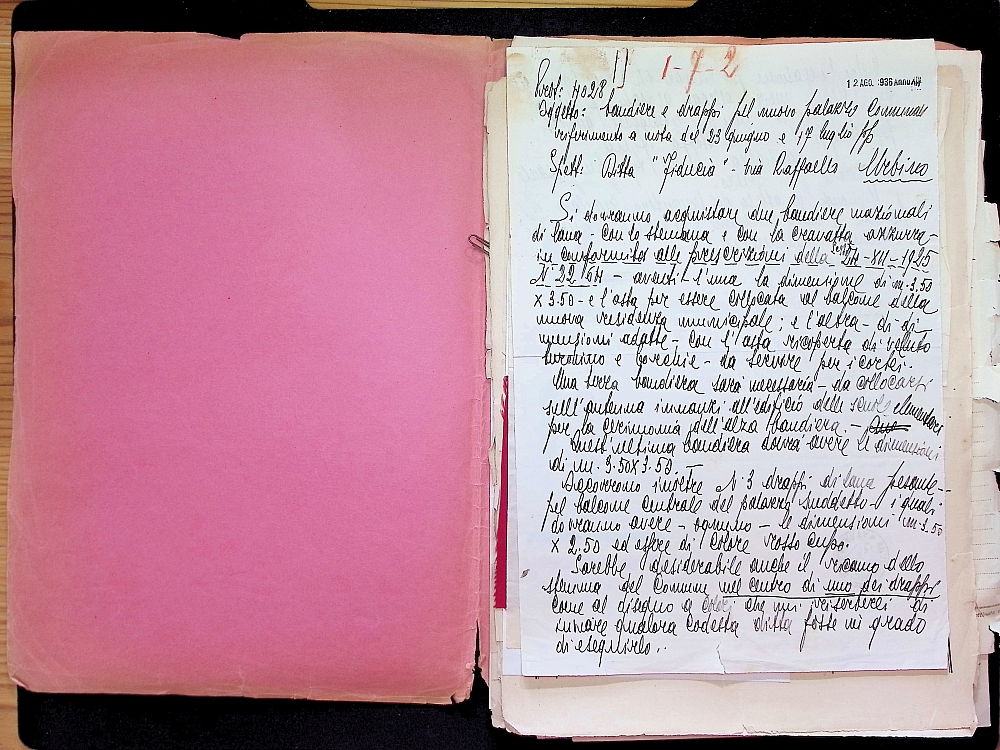 1-7-2
12 AGO. 1936 Anno XIV
Prot: 4028
Oggetto: bandiere e drappi pel nuovo palazzo Comunale
riferimento a nota del 23 giugno e 17 luglio pp
Spett: Ditta "Fiducia" - via Raffaello Urbino
Si dovranno acquistare due bandiere nazionali
di lana - con lo stemma e con la cravatta azzurra -
in conformità alle prescrizioni della 24-XII-1925
N 2264 - aventi - l'una la dimensione di m. 3.50
x 3.50 - e l'asta per essere collocata al balcone della
nuova residenza municipale; e l'altra - di di-
mensioni adatte - con l'asta ricoperta di velluto
e - da servire per i cortei.
Una terza bandiera sarà necessaria - da collocarsi
sull'antenna innanzi all'edificio delle scuole elementari
per la cerimonia dell'alza bandiera. - Que
Quest'ultima bandiera dovrà avere le dimensioni
di m. 3.50 x 3.50. -
Occorrono inoltre N 3 drappi di lana pesante -
pel balcone centrale del palazzo suddetto - i quali
dovranno avere - ognuno - le dimensioni m. 3.50
x 2.50 ed essere di colore rosso cupo.
Sarebbe desiderabile anche il ricamo dello
stemma del Comune nel centro di uno dei drappi
come al disegno a colori che mi riserberei di
inviare qualora codesta ditta fosse in grado
di eseguirlo..